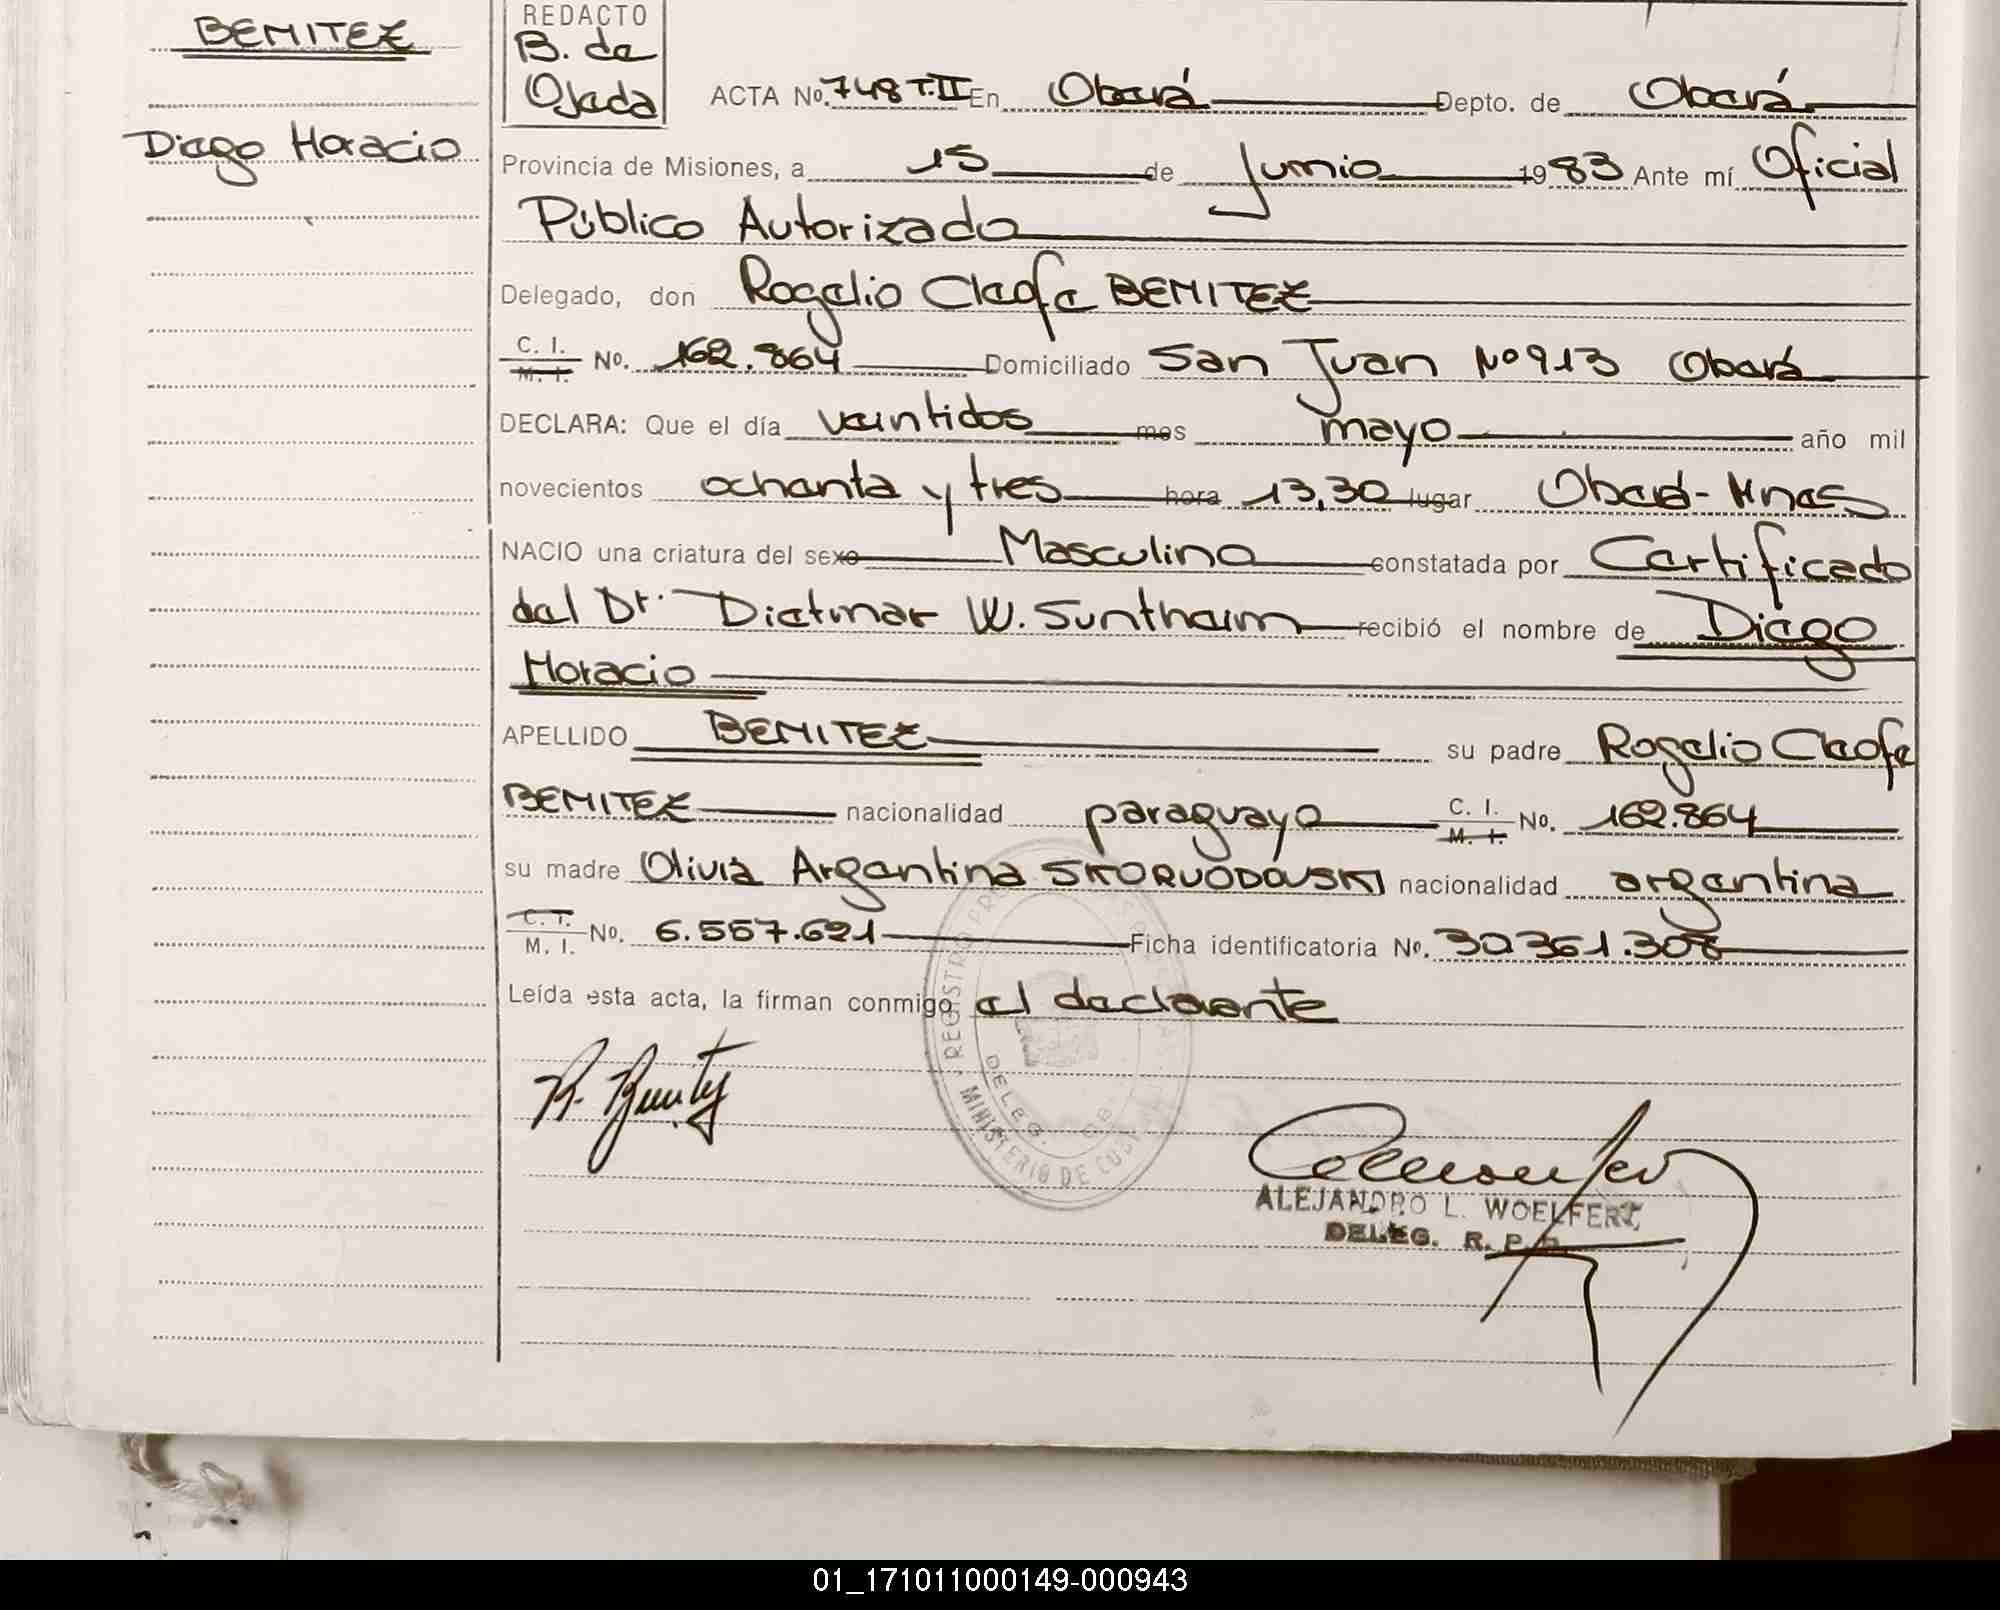 BENITEZ
Diego Horacio
REDACTO
B. de
Ojeda
ACTA No. 748 T.II En Oberá Depto. de Oberá
Provincia de Misiones, a 15 de Junio 1983 Ante mí Oficial
Público Autorizado
Delegado, don Rogelio Cleofe BENITEZ
C. I. M. I. No. 162.864 Domiciliado San Juan Nº 913 Oberá
DECLARA: Que el día veintidos mes mayo año mil
novecientos ochenta y tres hora 13,30 lugar Oberá - Mnes
NACIO una criatura del sexo Masculino constatada por Certificado
del Dr. Dietmar W. Suntheim recibió el nombre de Diego
Horacio
APELLIDO BENITEZ su padre Rogelio Cleofe
BENITEZ nacionalidad paraguaya C. I. M. I. No. 162.864
su madre Olivia Argentina SKORVODOUSKI nacionalidad argentina
C. I. M. I. No. 6.557.621 Ficha identificatoria No. 30.361.308
Leída esta acta, la firman conmigo el declarante
R. Benitez
REGISTRO
DELEG. OB.
MINISTERIO DE
ALEJANDRO L. WOELFERT
DELEG. R. P.
01_171011000149-000943